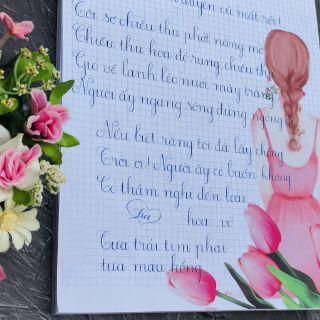 duyên cũ mất rồi!
Tôi sợ chiều thu phớt nắng mờ
Chiều thu hoa đỏ rụng chiều thu
Gió về lạnh lẽo mưa mây trắng
Người ấy ngang sông đứng ngóng
Nếu biết rằng tôi đã lấy chồng
Trời ơi! Người ấy có buồn không
Có thầm nghĩ đến loài
hoa vỡ
Tựa trái tim phai
tựa máu hồng